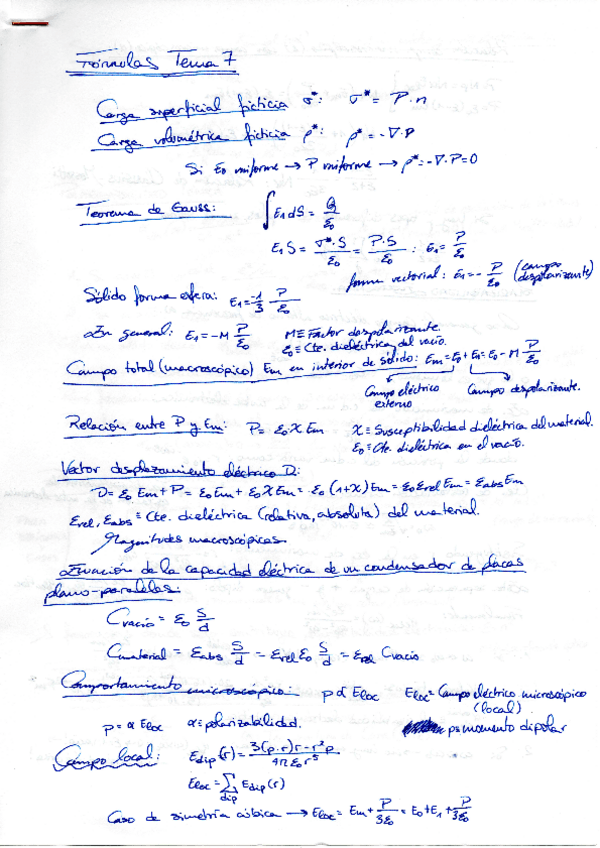 Fórmulas Tema 7
Carga superficial ficticia σ*: σ* = P·n
Carga volumétrica ficticia ρ*: ρ* = -∇·P
Si E0 uniforme → P uniforme → ρ* = -∇·P = 0
Teorema de Gauss: ∫E1 dS = Q/ε0
E1 S = σ*·S/ε0 = P·S/ε0 : E1 = P/ε0
forma vectorial: E1 = - P/ε0 (campo despolarizante)
Sólido forma esfera: E1 = -1/3 P/ε0
En general: E1 = -M P/ε0 M ≡ Factor despolarizante.
ε0 ≡ Cte. dieléctrica del vacío.
Campo total (macroscópico) Em en interior de sólido: Em = E0 + E1 = E0 - M P/ε0
Campo eléctrico externo Campo despolarizante.
Relación entre P y Em: P = ε0 χ Em χ ≡ Susceptibilidad dieléctrica del material.
ε0 ≡ Cte. dieléctrica en el vacío.
Vector desplazamiento eléctrico D:
D = ε0 Em + P = ε0 Em + ε0 χ Em = ε0 (1+χ) Em = ε0 εrel Em = εabs Em
εrel, εabs ≡ Cte. dieléctrica (relativa, absoluta) del material.
Magnitudes macroscópicas.
Ecuación de la capacidad eléctrica de un condensador de placas
plano-paralelas:
Cvacío = ε0 S/d
Cmaterial = εabs S/d = εrel ε0 S/d = εrel Cvacío
Comportamiento microscópico: p α Eloc Eloc = Campo eléctrico microscópico
(local)
p = α Eloc α ≡ polarizabilidad. p ≡ momento dipolar
Campo local: Edip(r) = 3(p·r)r - r²p / 4πε0 r⁵
Eloc = Σdip Edip(r)
Caso de simetría cúbica → Eloc = Em + P/3ε0 = E0 + E1 + P/3ε0